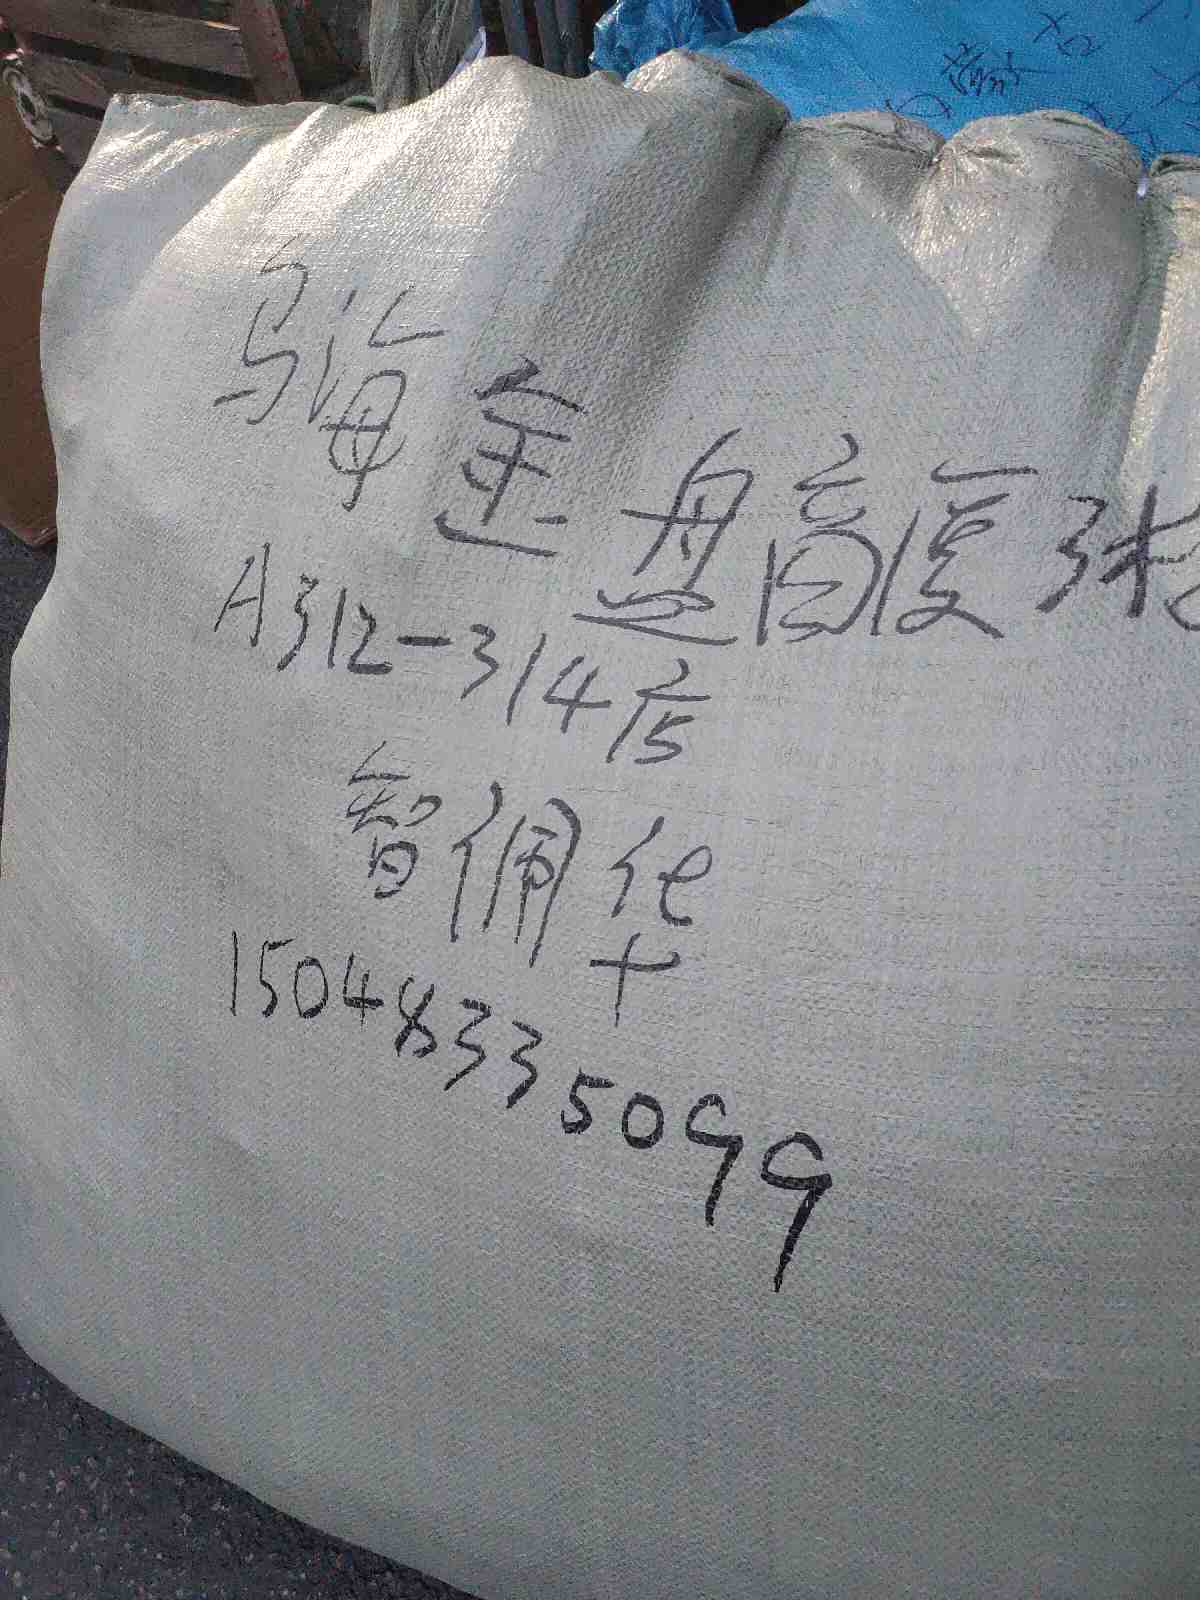 乌海金盘商厦3楼
A312-314店
智佩华
15048335099